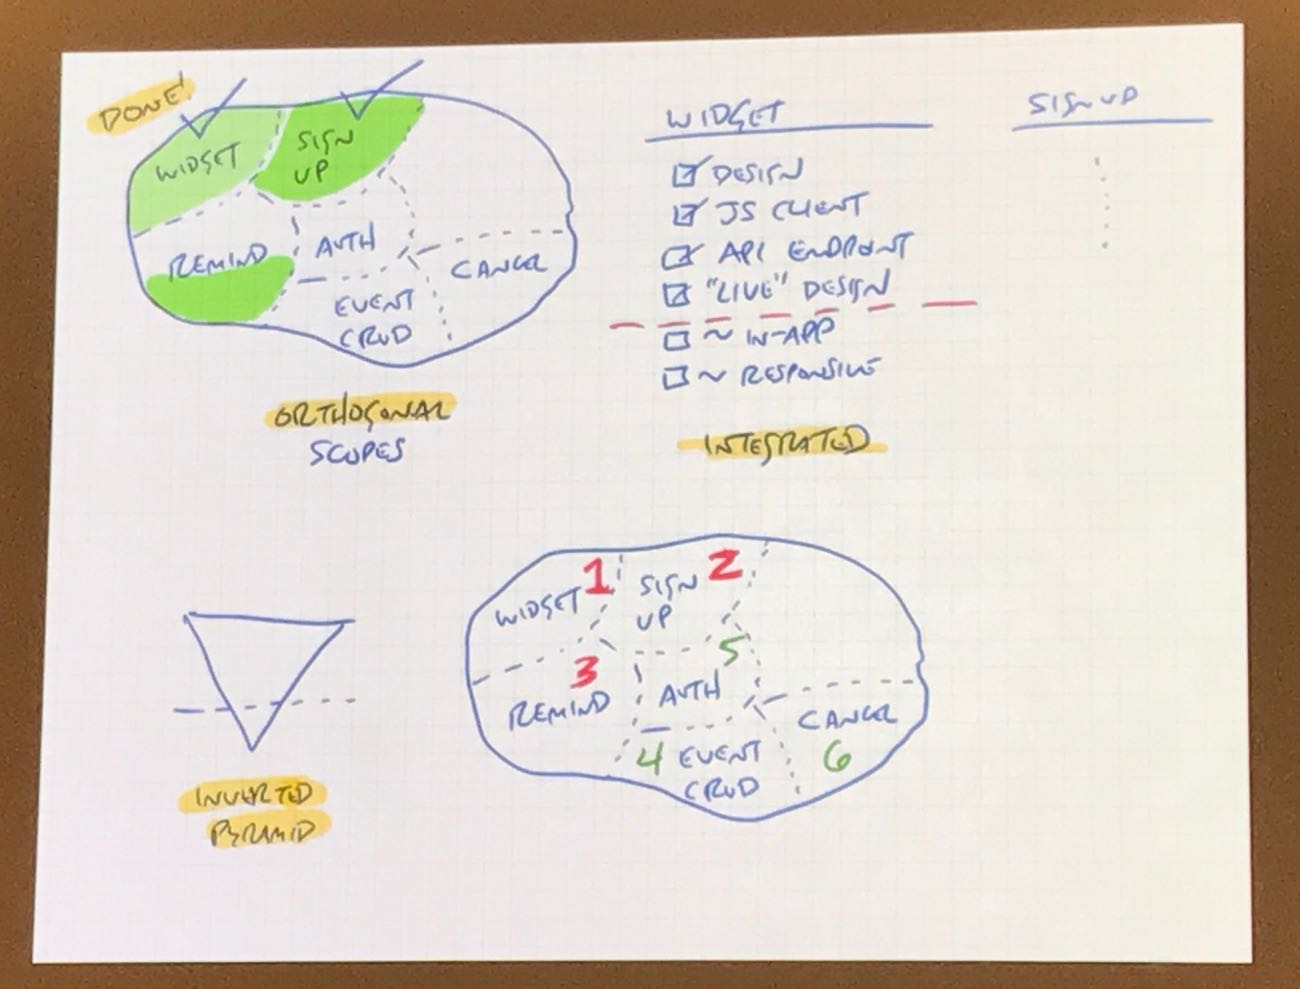 DONE!
WIDGET
SIGN
UP
REMIND
AUTH
CANCEL
EVENT
CRUD
ORTHOGONAL
SCOPES
WIDGET
DESIGN
JS CLIENT
API ENDPOINT
"LIVE" DESIGN
~ IN-APP
~ RESPONSIVE
INTEGRATED
SIGN UP
INVERTED
PYRAMID
WIDGET 1
SIGN 2
UP
3
REMIND
5
AUTH
CANCEL
6
4 EVENT
CRUD